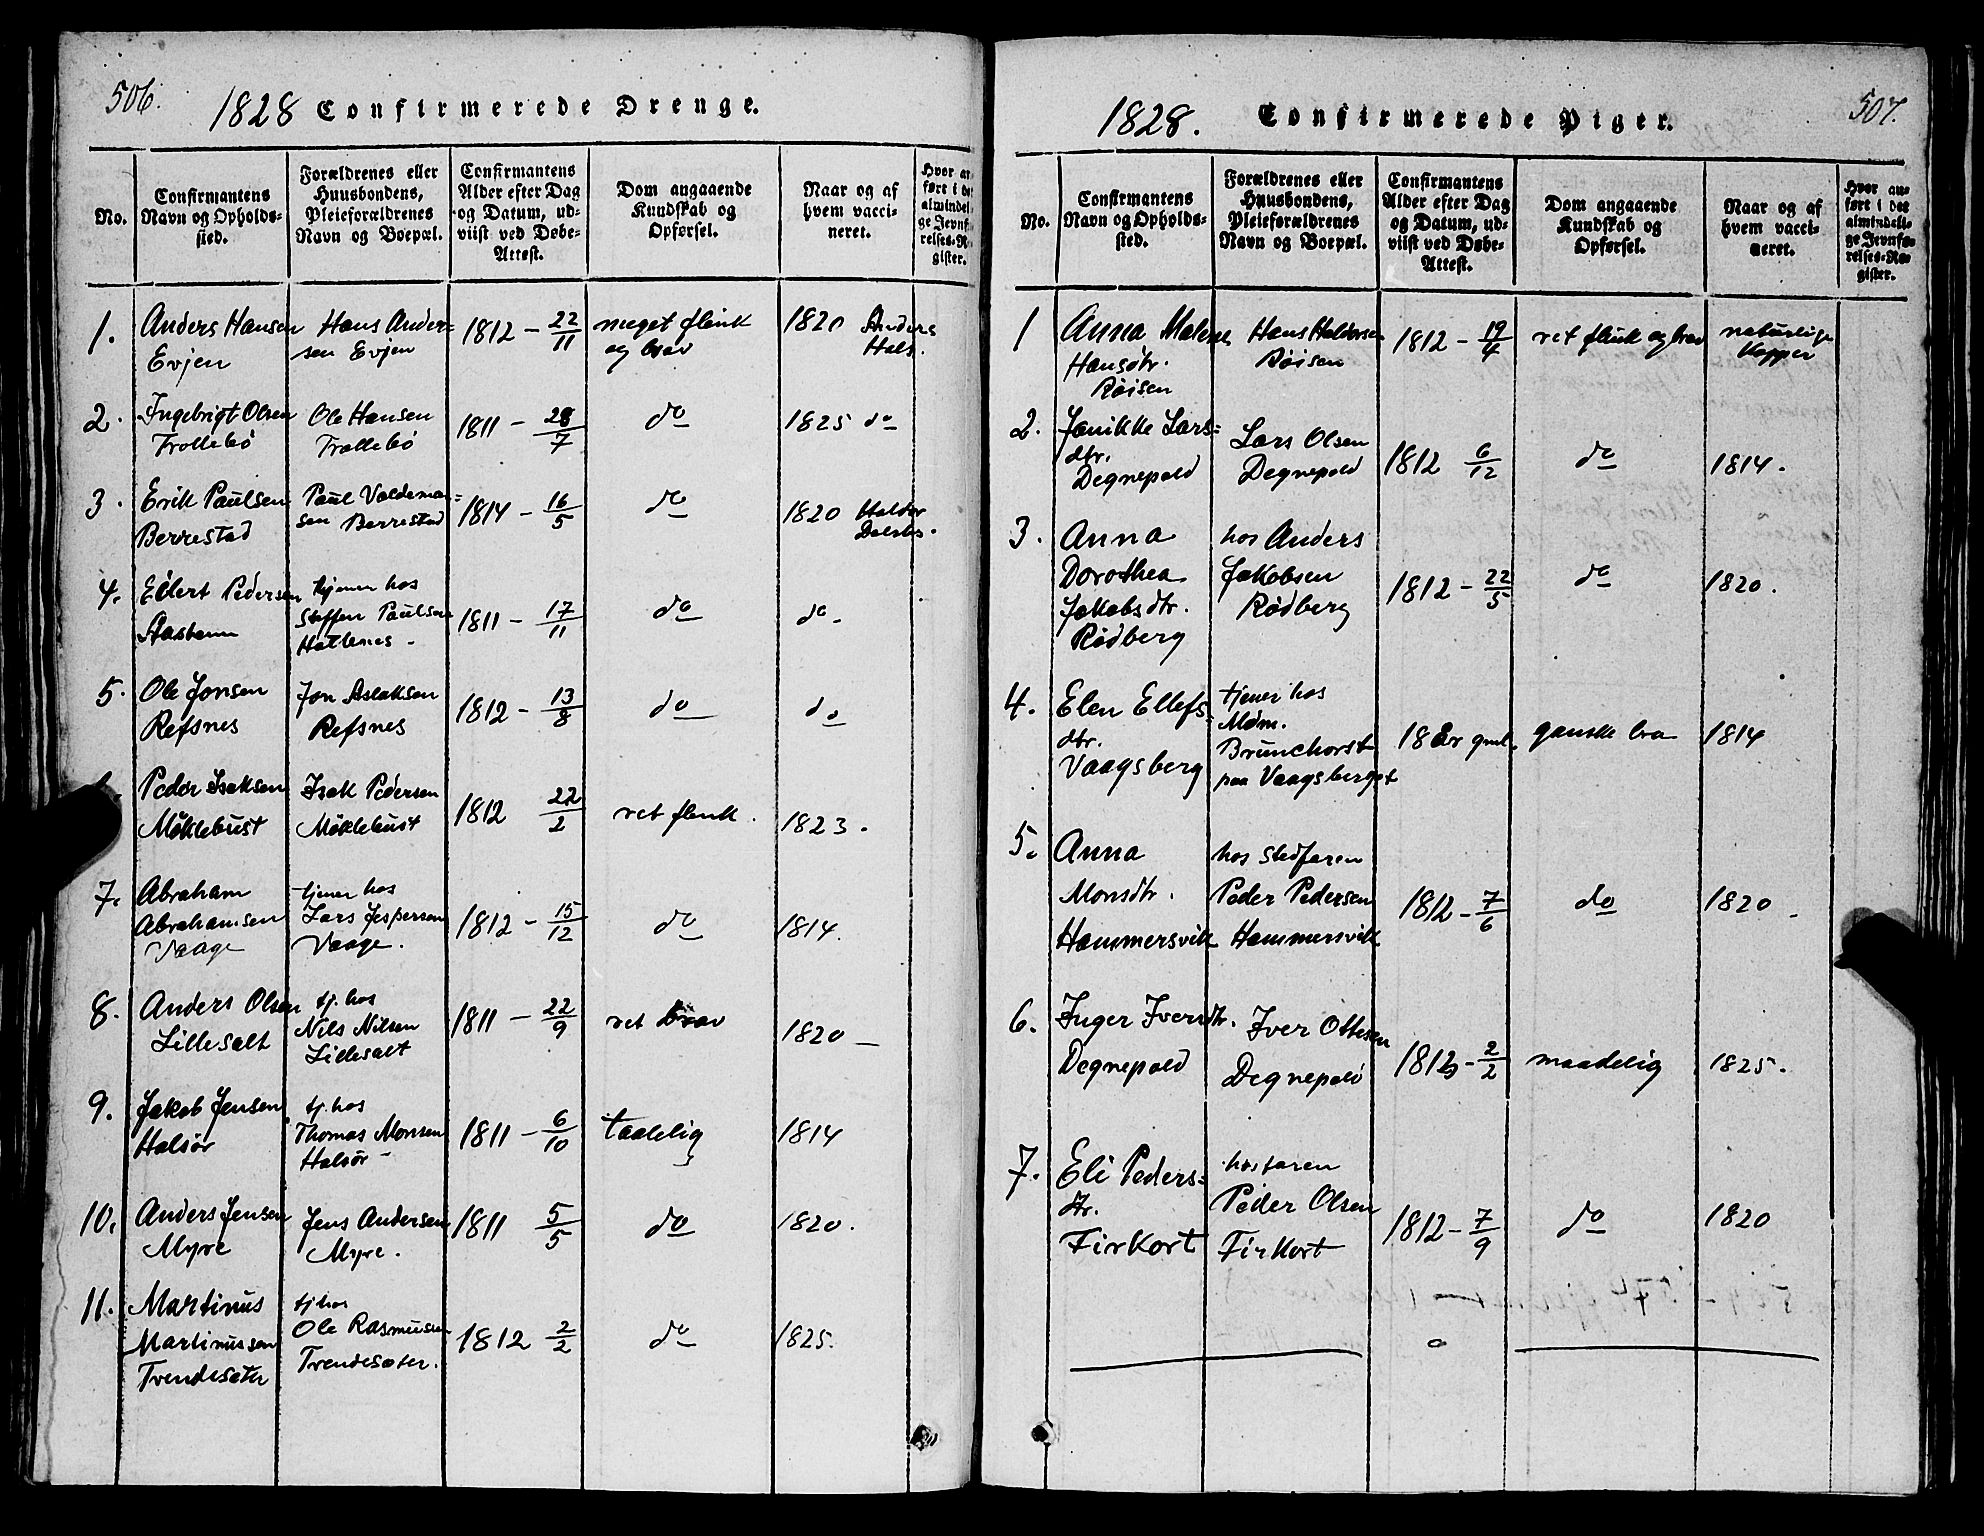 506.
1828 Confirmerede Drenge.
No.
Confirmantens
Navn og Opholds-
sted.
Forældrenes eller
Huusbondens,
Pleieforældrenes
Navn og Boepæl.
Confirmantens
Alder efter Dag
og Datum, ud-
viist ved Døbe-
Attest.
Dom angaaende
Kundskab og
Opførsel.
Naar og af
hvem vacci-
neret.
Hvor an
ført i det
almindel
ge Jevnf
relses-R
gister.
1. Anders Hansen Hans Ander= 1812 - 22/11 meget flink 1820 Anders
Evjen sen Evjen og brav Hals.
2. Ingebrigt Olsen Ole Hansen 1811 - 28/7 do 1825 do
Trollebö Trollebö
3. Erik Paulsen Paul Valdemar= 1814 - 16/5 do 1820 Haldor
Berrestad sen Berrestad
4. Ellert Pedersen tjener hos
Steffen Paulsen 1811 - 17/11 do do -
Hatlenes -
5. Ole Jonsen Jon Aslaksen 1812 - 13/8 do do
Refsnes Refsnes
Peder Isaksen Isak Pedersen 1812 22/2 ret flink. 1823.
Möklebust Möklebust
7. Abraham tjener hos
Abrahamsen Lars Jespersen 1812 - 15/12 do 1814.
Vaage Vaage.
8. Anders Olsen tj. hos
Lillesalt Nils Nilsen 1811 - 22/9 ret brav 1820 -
Lillesalt
9. Jakob Jensen tj. hos
Halsör Thomas Monsen 1811 - 6/10 taalelig 1814
Halsör -
10. Anders Jensen Jens Andersen 1811 5/5 do 1820.
Myre Myre.
11. Martinus tj hos
Martinussen Ole Rasmussen 1812 2/2 do 1825.
Trendesæter Trendesæter.
1828. Confirmerede Piger. 507.
No.
Confirmantens
Navn og Opholds-
sted.
Forældrenes eller
Huusbondens,
Pleieforældrenes
Navn og Boepæl.
Confirmantens
Alder efter Dag
og Datum, ud-
viist ved Døbe-
Attest.
Dom angaaende
Kundskab og
Opførsel.
Naar og af
hvem vacci-
neret.
Hvor an-
ført i det
almindeli-
ge Jevnfø-
relses-Re-
gister.
1 Anna Malene Hans Haldorsen 1812 - 19/4 ret flink og brav naturlige
Hansdtr. Röisen Kopper
Röisen
2. Janikke Lars=
dtr. Lars Olsen 1812 6/12 do 1814.
Degnepold Degnepold
3. Anna hos Anders
Dorothea Jakobsen 1812 - 22/5 do 1820.
Jakobsdtr. Rödberg
Rödberg
4. Elen Ellefs= tjener hos
dtr. Madm.
Vaagsberg Brunchorst 18 ganske bra 1814
paa Vaagsberget
5. Anna hos stedfaren
Monsdtr. Peder Pedersen 1812 - 7/6 do 1820 -
Hammersvik Hammersvik
6. Inger Iversdtr. Iver Ottesen
Degnepold Degnepold 1812 - 2/2 maadelig 1825.
7. Eli Peders= hos faren
dtr. Peder Olsen 1812 - 7/9 do 1820
Firkort Firkort